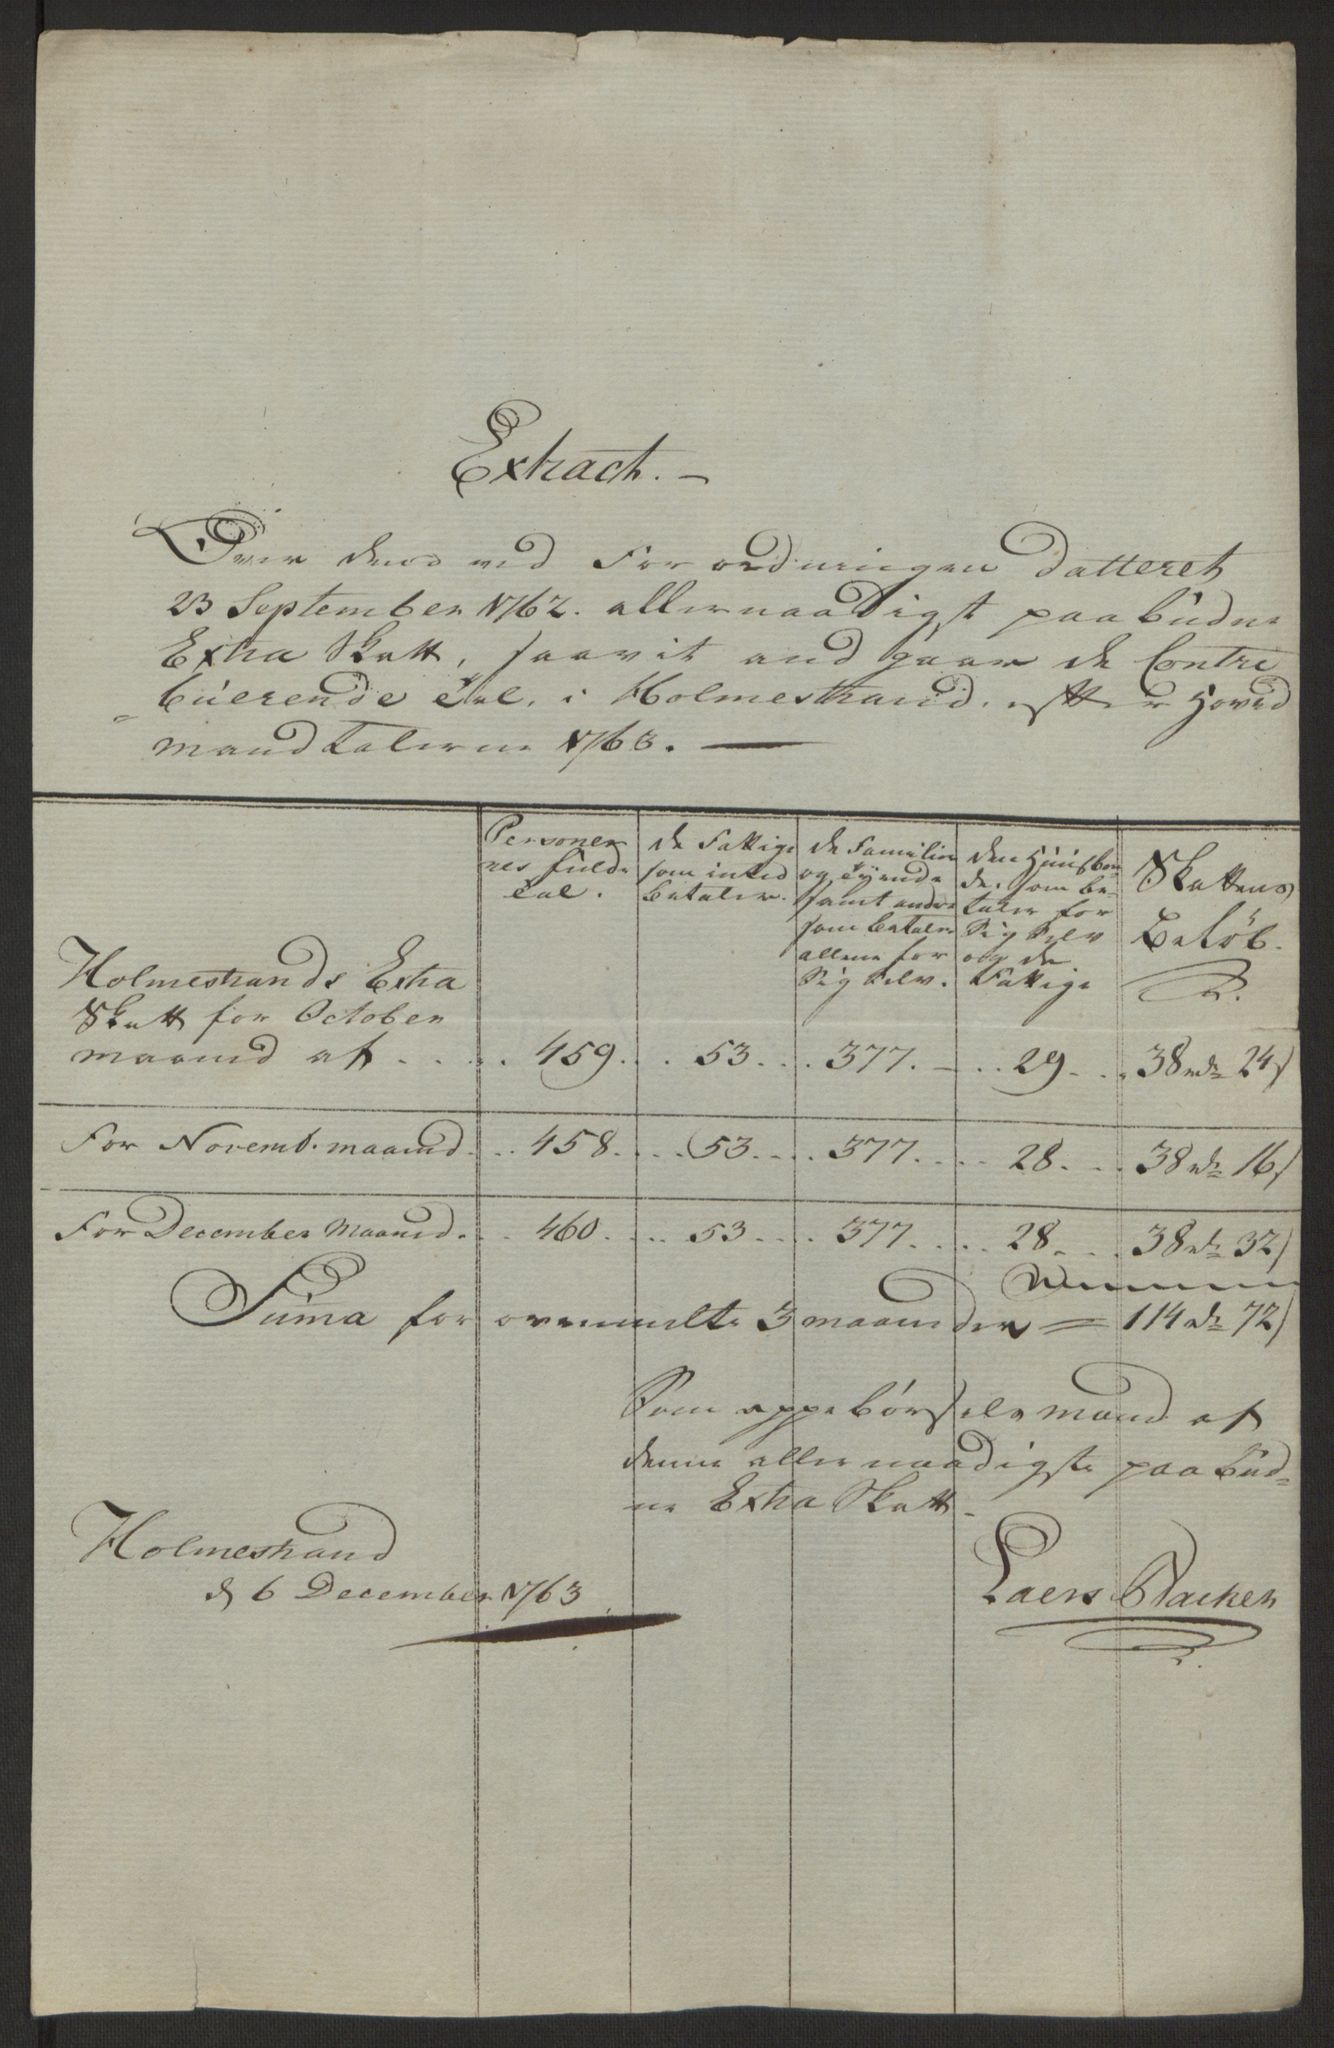 Extract. —
Over den ved Forordningen Datteret
23 September 1762. allernaadigst paabudne
Extra Skatt, saavit and gaar de Contri
buerende Tal, i Holmestrand, efter Hoved
mandtalerne 1763. —
Personer
nes fulde
Tal.
de Fattige
som inted
Betaler.
de Familier
og Tyende
samt andre
som betaler
allene for
Sig Selv.
den Huusbon
de, som be-
taler for
Sig Selv
og de
Fattige
Skattens
Beløb.
Holmestrands Extra
Skatt for October
maaned af . . . . 459. . . 53. . . . 377. — . . 29. . . . 38 rdr 24 s
For Novemb. maaned. . . 458. . . . 53. . . . 377. . . . . 28. . . . 38 rdr 16 s
For December Maaned. . . 460. . . . 53. . . . 377. . . . . 28. . . . 38 rdr 32 s
Suma for ovenmelte 3 maaneder = 114 rdr 72 s
Som oppebørsels mand af
denne allernaadigste paabud-
ne Extra Skatt.
Holmestrand
d 6 December 1763
Laers Backer